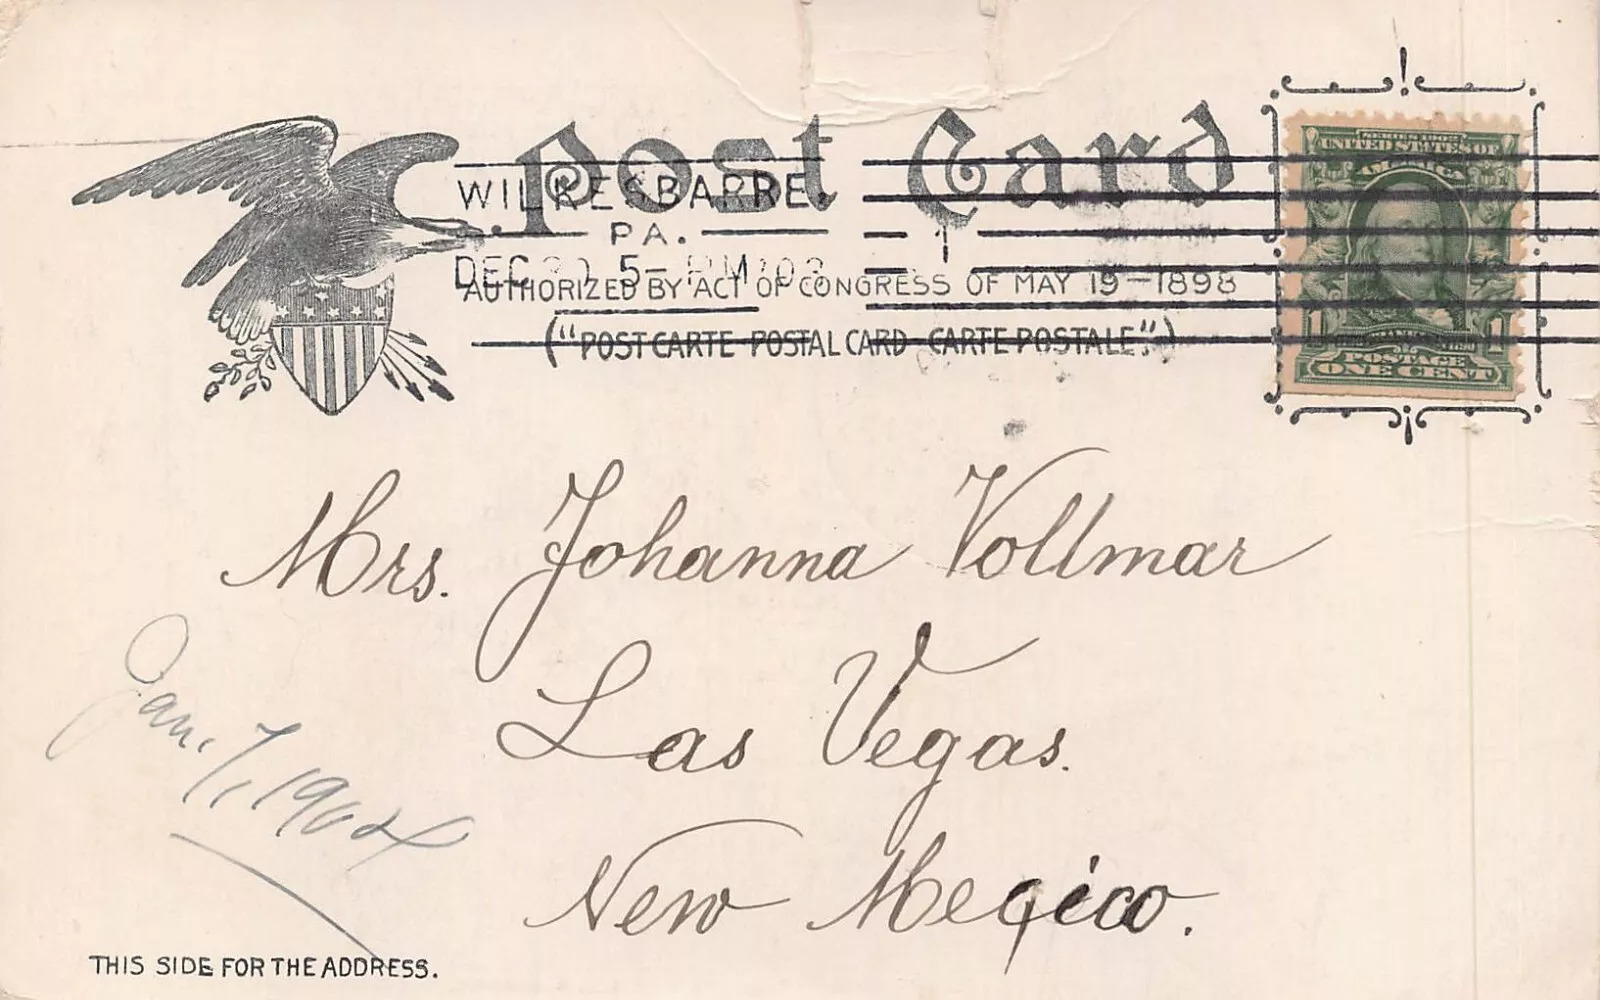 Post Card
WILKESBARRE.
PA.
DEC 5-PM
AUTHORIZED BY ACT OF CONGRESS OF MAY 19-1898
("POST CARTE-POSTAL CARD-CARTE POSTALE")
UNITED STATES OF
AMERICA
1 1
POSTAGE
ONE CENT
Mrs. Johanna Vollmar
Las Vegas.
New Mexico.
Jan. 7, 1904
THIS SIDE FOR THE ADDRESS.